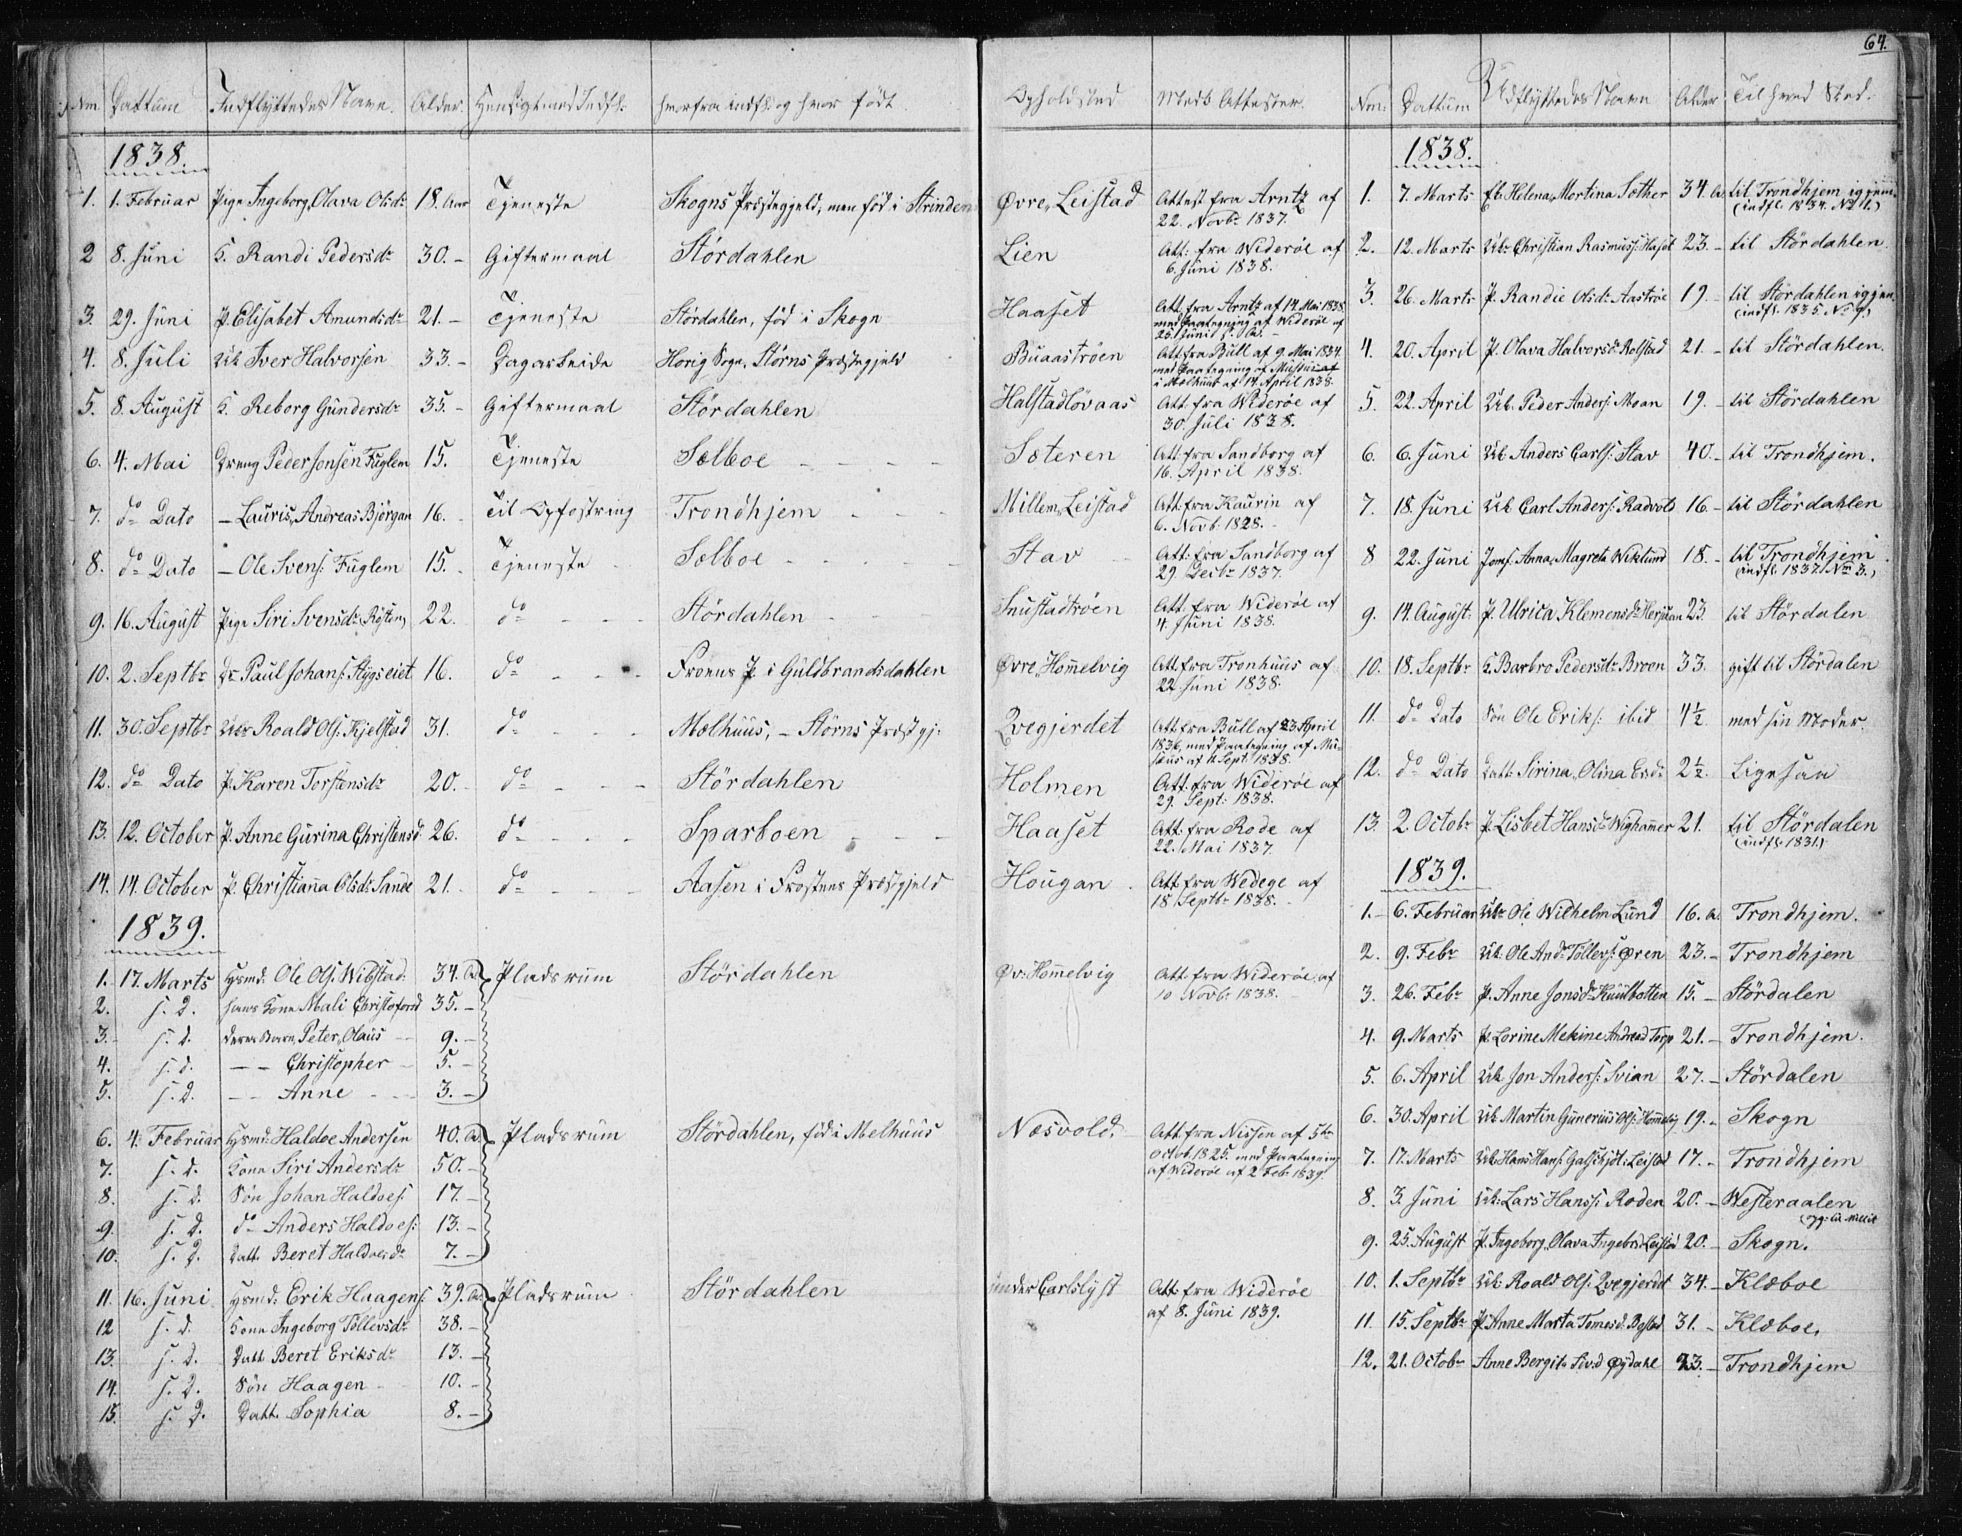 64.
Nm Dattum Indflyttedes Navn. Alder. Hensigt med Indfl: hvorfra indfl. og hvor født Opholdsted Medb. Attester.
1838.
1. 1. Februar Pige Ingeborg Olava Olsdr 18. Aar Tjeneste Skogns Præstegjeld, men född i Strinden Øvre Leistad Attest fra Arntz af
22. Novbr 1837.
2 8. Juni K. Randi Pedersdr 30. – Giftermaal Stördahlen Lien Att: fra Widerøe af
6. Juni 1838.
3. 29. Juni P. Elisabet Amundsdr 21. – Tjeneste Stördahlen, föd i Skogn Haaset Att. fra Arntz af 14. Mai 1838.
med Paategning af Widerøe af
25. Junii s. A.
4. 8. Juli Uk Iver Halvorsen 33. – Dagarbeide Horig Sogn, Störns Præstegjeld Buaaströen Att. fra Bull af 9. Mai 1834.
med Paategning af
i Mælhuus af 14. April 1838.
5. 8. August K. Reborg Gundersdr 35. – Giftermaal Stördahlen Halstadlövaas Att: fra Widerøe af
30. Juli 1838.
6. 4. Mai Dreng Peder Jonsen Fuglem 15. Tjeneste Sælboe – – – – Sæteren Att: fra Sandborg af
16. April 1838.
7. do Dato – Lauris Andreas Björgan 16. – Til Opfostring Trondhjem – – – Millem Leistad Att: fra Kaurin af
6. Novb. 1828. –
8. do Dato – Ole Svens: Fuglem 15. – Tjeneste – Sælboe – – – – – Stav – Att: fra Sandborg af
29. Decbr 1837.
9. 16. August Pige Siri Svensdr Rösten 22. do – – – Stördahlen – – – Snustadtröen Att: fra Widerøe af
4. Juni 1838.
10. 2. Septbr Dr Paul Johans: Flygseiet 16. do – – – Froens P. i Guldbrandsdahlen Øvre Homelvig Att: fra Tronhuus af
22. Juni 1838.
11. 30. Septbr Uk Roald Ols: Kjelstad 31. do – – – Mælhuus, – Störns Præstgj: Qvegjerdet Att: fra Bull af 23 April
1836, med Paategning af Mu-
sæus af 11 Sept. 1838.
12. do Dato P. Karen Torstensdr 20. – do – – – Stördahlen Holmen Att: fra Widerøe af
29. Sept: 1838.
13. 12. October P. Anne Gurina Christensd: 26. do – – – Sparboen – – – Haaset Att: fra Rode af
22. Mai 1837.
14. 14. October P. Christianna Olsdr Sande 21. do – – – Aasen i Frostens Præstgjeld Hougan. Att: fra Wedege af
18 Septbr 1838.
1839.
1. 17. Marts Husmd: Ole Ols: Wibstad 34. A. Pladsrum Stördahlen Øv: Homelvig Att: fra Widerøe af
10 Novbr 1838.
2. s. D. hans Kone Mali Christofersd 35. –
3. – s. d. deres Barn, Peter Olaus – 9. –
4. s. d. – – Christopher – 5. –
5. s. D. – – Anne – – – 3. –
6. 4. Februar Husmd: Haldoe Andersen 40. A. Pladsrum Stördahlen, föd i Melhuus Næsvold. Att: fra Nissen af 5te
Octob. 1825. med Paategning
af Widerøe af 2 Feb. 1839.
7. s. d. Kone Siri Andersdr 50. –
8. s. D. Sön Johan Haldoes: 17. –
9. s. D. do Anders Haldoes: 13. –
10. s. D. Datt. Beret Haldoesdr 7. –
11. 16. Juni Husmd: Erik Haagens: 39. A. Pladsrum Stördahlen under Carlslyst Att: fra Widerøe
af 8. Juni 1839.
12 s. d. Kone Ingeborg Tollevsdr 38. –
13. s. d. Datt. Beret Eriksdr 13. –
14. s. D. Sön Haagen – 10. –
15. s. D. Datt. Sophia 8. –
Nm: Dattum Udflyttedes Navn Alder Til hvad Sted.
1838.
1. 7. Marts Helena Mortina Sæther 34. A. til Trondhjem igjen
(indfl. 1834. No 11.)
2. 12. Marts Uk Christian Rasmuss: Haset 23. – til Stördahlen
3. 26. Marts P. Randie Olsdr Aaströe 19. – til Stördahlen igjen
(indfl. 1835. No 9.)
4. 20. April P. Olava Halvorsd: Rolstad 21. – til Stördahlen.
5. 22. April Uk. Peder Anders: Moan 19. – til Stördahlen
6. 6. Juni Uk Anders Carls: Stav 40. – til Trondhjem.
7. 18. Juni Uk Carl Anders: Radvolt 16. – til Stördahlen
8 22. Juni Jomf. Anna Magreta Wiklund 18. – til Trondhjem
(indfl. 1837. Nr 3.)
9. 14. August. P. Ulrica Klemensdr Herjuan 23 til Stördalen
10. 18. Septbr K. Barbro Pedersdr Broen 33. gift til Stördalen
11. do Dato Sön Ole Eriks: ibid 4½ med sin Moder.
12. do Dato Datt. Sirina Olina Ersdr 2½. Ligesaa
13. 2. Octobr P. Lisbet Hansdr Wighammer 21. til Stördalen
(indfl. 1831.)
1839.
1. – 6. Februar Uk Ole Wilhelm Lund 16. A. Trondhjem.
2. 9. Febr Uk. Ole And: Tollevs: Øren 23. – Trondhjem
3. 26. Febr P. Anne Jonsdr Kuulbotten 15. – Stördalen
4. 9. Marts P. Lorine Mekine Andread Torp 21. – Trondhjem.
5. 6. April Uk Jon Anders: Svian 27. – Stördalen
6. 30. April Uk Martin Gunerius Ols: Homelvig 19. – Skogn
7. 17. Marts Uk Hans Hans: Leistad 17. – Trondhjem
8. 3. Juni Uk: Lars Hans: Roden 20. – Westeraalen
9. 25. August P. Ingeborg Olava Ingebrd Leistad 20. – Skogn.
10. 1. Septbr Uk Roald Ols: Qvegjerdet 34. – Klæboe
11. 15. Septbr P. Anne Marta Tomesd: Bostad 31. – Klæboe.
12. 21. Octobr Anne Bergita Sivd Øydahl 23. – Trondhjem